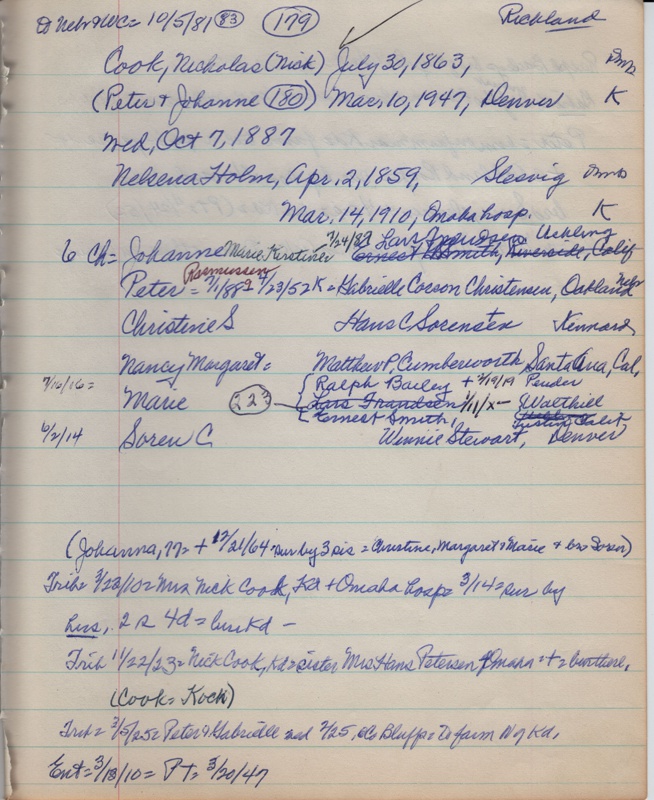 to Nebr & WC = 10/5/81 (83) (179) Richland
Cook, Nicholas (Nick) July 30, 1863,
(Peter + Johanne (180)) Mar. 10, 1947, Denver K
Wed, Oct 7, 1887
Nelseena Holm, Apr. 2, 1859, Slesvig
Mar. 14, 1910, Omaha hosp. K
6 Ch = Johanne Marie Kerstine 7/24/87 Lars Uehling
Ernest Smith, Riverside, Calif
Rasmussen
Peter = 7/1/88 7/23/52 K = Gabrielle Corson Christensen, Oakland Nebr
Christine S Hans C Sorensen Kennard
Nancy Margaret = Matthew P. Cumberworth Santa Ana, Cal,
7/16/16 = { Ralph Bailey + 2/19/19 Pender
Marie (223) { Lars Frandsen 1/11/x - Walthill
{ Ernest Smith, Tustin Calif
6/2/14 Soren C Winnie Stewart, Denver
(Johanna, 77 = + 12/21/64 = sur by 3 sis = Christine, Margaret & Marie + bro Soren)
Trib = 3/23/10 = Mrs Nick Cook, Kd + Omaha hosp = 3/14 = sur by
hus, 2 s 4 d = bur Kd -
Trib 11/22/23 = Nick Cook, Kd = sister Mrs Hans Petersen of Omaha = + = bur there,
(Cook = Kock)
Trib = 3/5/25 = Peter & Gabrielle wed 2/25, Co Bluffs = to farm N of Kd,
Ent = 3/18/10 = PT = 3/20/47